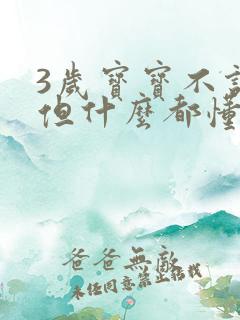 3歲寶寶不
但什麼都懂
爸爸無敵
未經同意禁止轉載